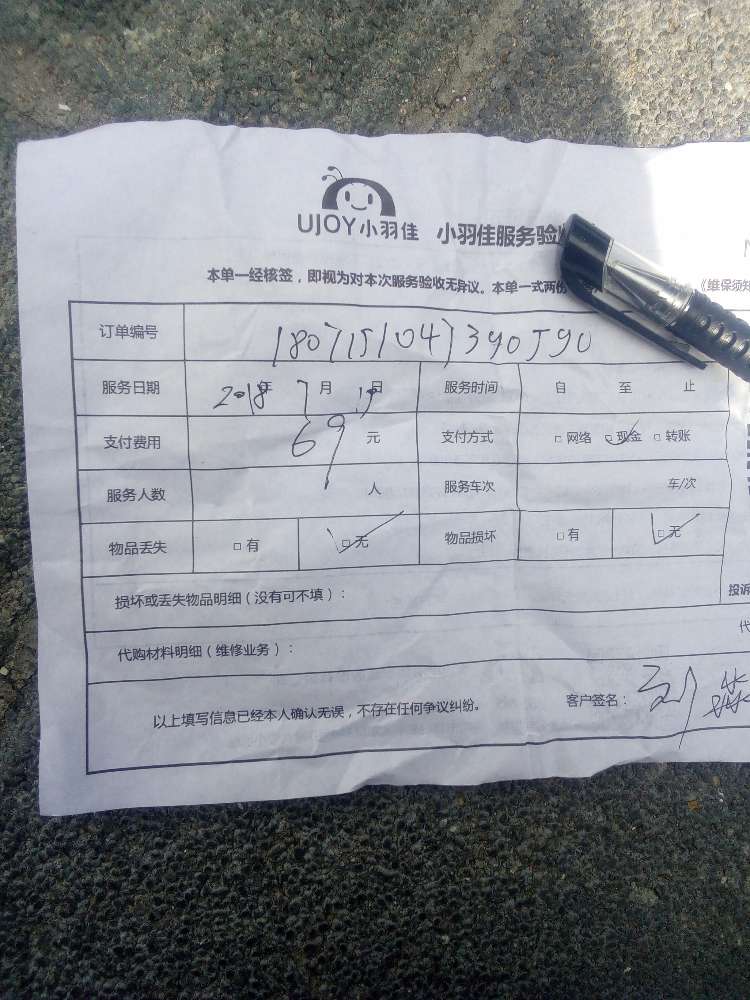 UJOY小羽佳 小羽佳服务验
本单一经核签，即视为对本次服务验收无异议。本单一式两份 《维保须知
订单编号 1807151047390590
服务日期 2018年 7月 15日 服务时间 自 至 止
支付费用 69元 支付方式 □网络 □现金 □转账
服务人数 人 服务车次 车/次
物品丢失 □有 □无 物品损坏 □有 □无
损坏或丢失物品明细（没有可不填）： 投诉
代购材料明细（维修业务）： 代
以上填写信息已经本人确认无误，不存在任何争议纠纷。 客户签名：刘